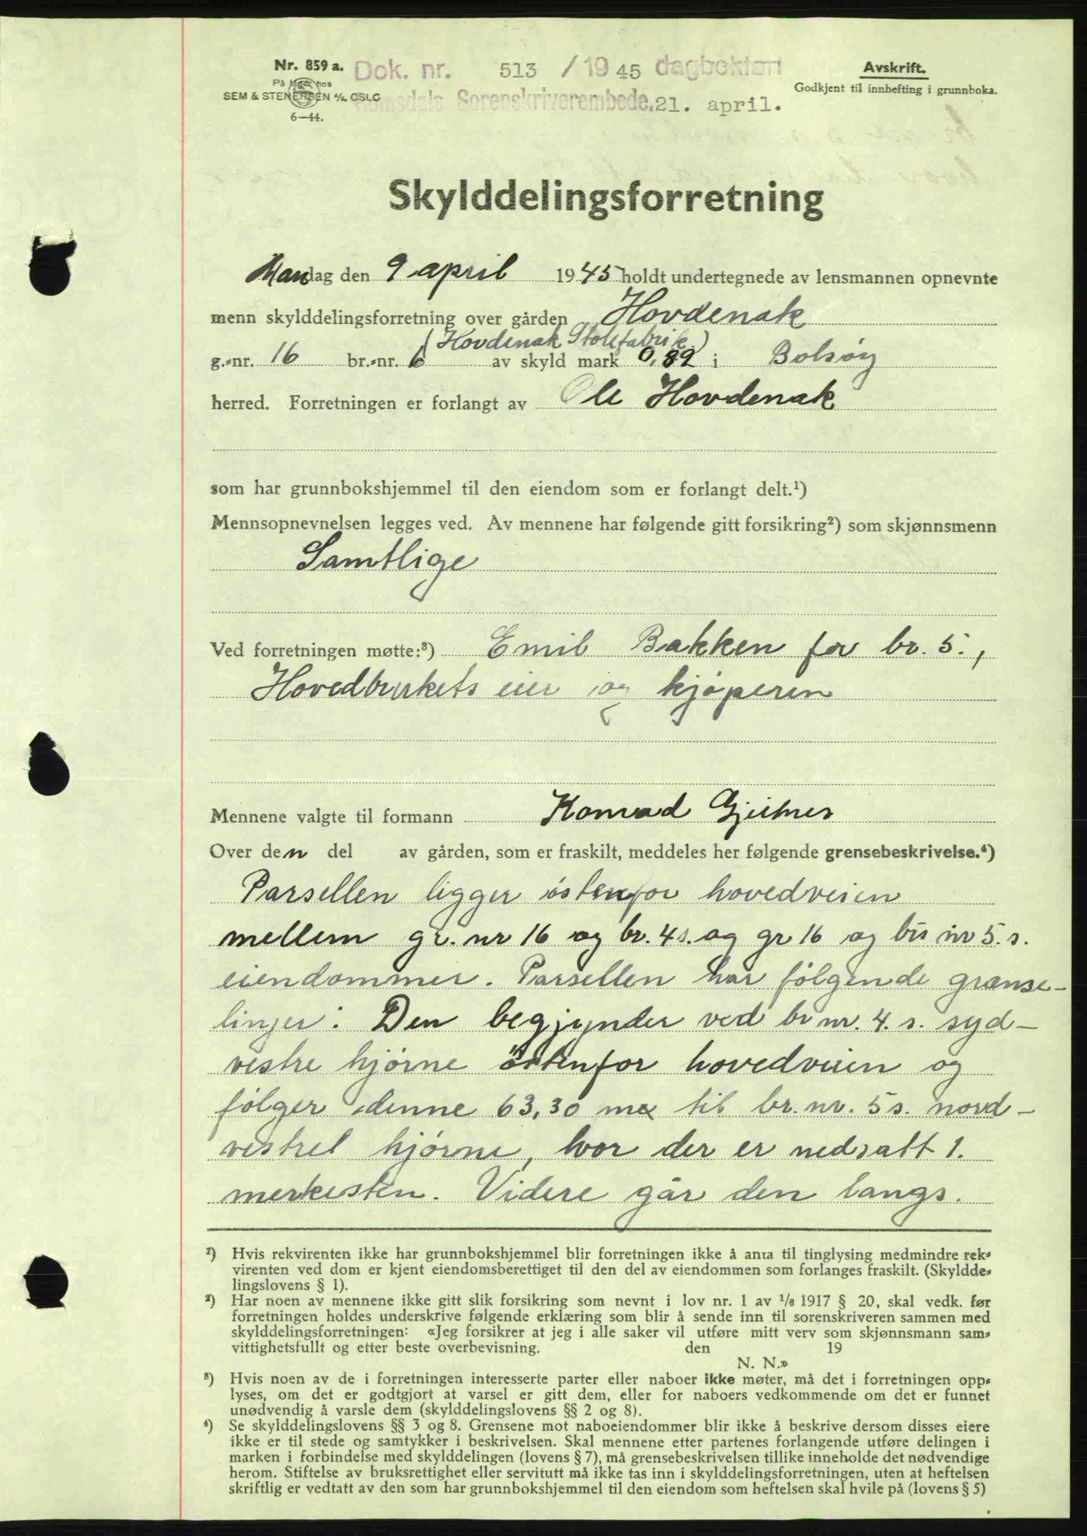 Nr. 859 a.
På lager hos
SEM & STENERSEN A/S. OSLO
6—44.
Dok. nr. 513 / 19 45 dagbokført
Romsdals Sorenskriverembede. 21. april.
Avskrift.
Godkjent til innhefting i grunnboka.
Skylddelingsforretning
Mandag den 9 april 1945 holdt undertegnede av lensmannen opnevnte
menn skylddelingsforretning over gården Hovdenak
(Hovdenak Stolfabrik)
g.-nr. 16 br.-nr. 6 av skyld mark 0,89 i Bolsøy
herred. Forretningen er forlangt av Ole Hovdenak
som har grunnbokshjemmel til den eiendom som er forlangt delt.¹)
Mennsopnevnelsen legges ved. Av mennene har følgende gitt forsikring²) som skjønnsmenn
Samtlige
Ved forretningen møtte:³) Emil Bakken for br. 5.,
Hovedbrukets eier og kjøperen
Mennene valgte til formann Konrad Gjeitnes
Over den del av gården, som er fraskilt, meddeles her følgende grensebeskrivelse.⁴)
Parsellen ligger østenfor hovedveien
mellem gr. nr 16 og br. 4s. og gr 16 og br nr 5. s.
eiendommer. Parsellen har følgende grænse-
linjer: Den begjynder ved br nr. 4. s. syd-
vestre hjørne østenfor hovedveien og
følger denne 63,30 m til br. nr. 5 s. nord-
vestret hjørne, hvor der er nedsatt 1.
merkesten. Videre går den langs.
¹) Hvis rekvirenten ikke har grunnbokshjemmel blir forretningen ikke å anta til tinglysing medmindre rek-
virenten ved dom er kjent eiendomsberettiget til den del av eiendommen som forlanges fraskilt. (Skyldde-
lingslovens § 1).
²) Har noen av mennene ikke gitt slik forsikring som nevnt i lov nr. 1 av 1/6 1917 § 20, skal vedk. før
forretningen holdes underskrive følgende erklæring som blir å sende inn til sorenskriveren sammen med
skylddelingsforretningen: «Jeg forsikrer at jeg i alle saker vil utføre mitt verv som skjønnsmann sam-
vittighetsfullt og etter beste overbevisning. den 19
N. N.»
³) Hvis noen av de i forretningen interesserte parter eller naboer ikke møter, må det i forretningen opp-
lyses, om det er godtgjort at varsel er gitt dem, eller for naboers vedkommende om det er funnet
unødvendig å varsle dem (skylddelingslovens §§ 2 og 8).
⁴) Se skylddelingslovens §§ 3 og 8. Grensene mot naboeiendommer blir ikke å beskrive dersom disses eiere
ikke er til stede og samtykker i beskrivelsen. Skal mennene etter partenes forlangende utføre delingen i
marken i forbindelse med skylddelingen (lovens § 7), må grensebeskrivelsen tillike inneholde det nødvendige
herom. Stiftelse av bruksrettighet eller servitutt må ikke tas inn i skylddelingsforretningen, uten at heftelsen
skriftlig er vedtatt av den som har grunnbokshjemmel til den eiendom som heftelsen skal hvile på (lovens § 5)